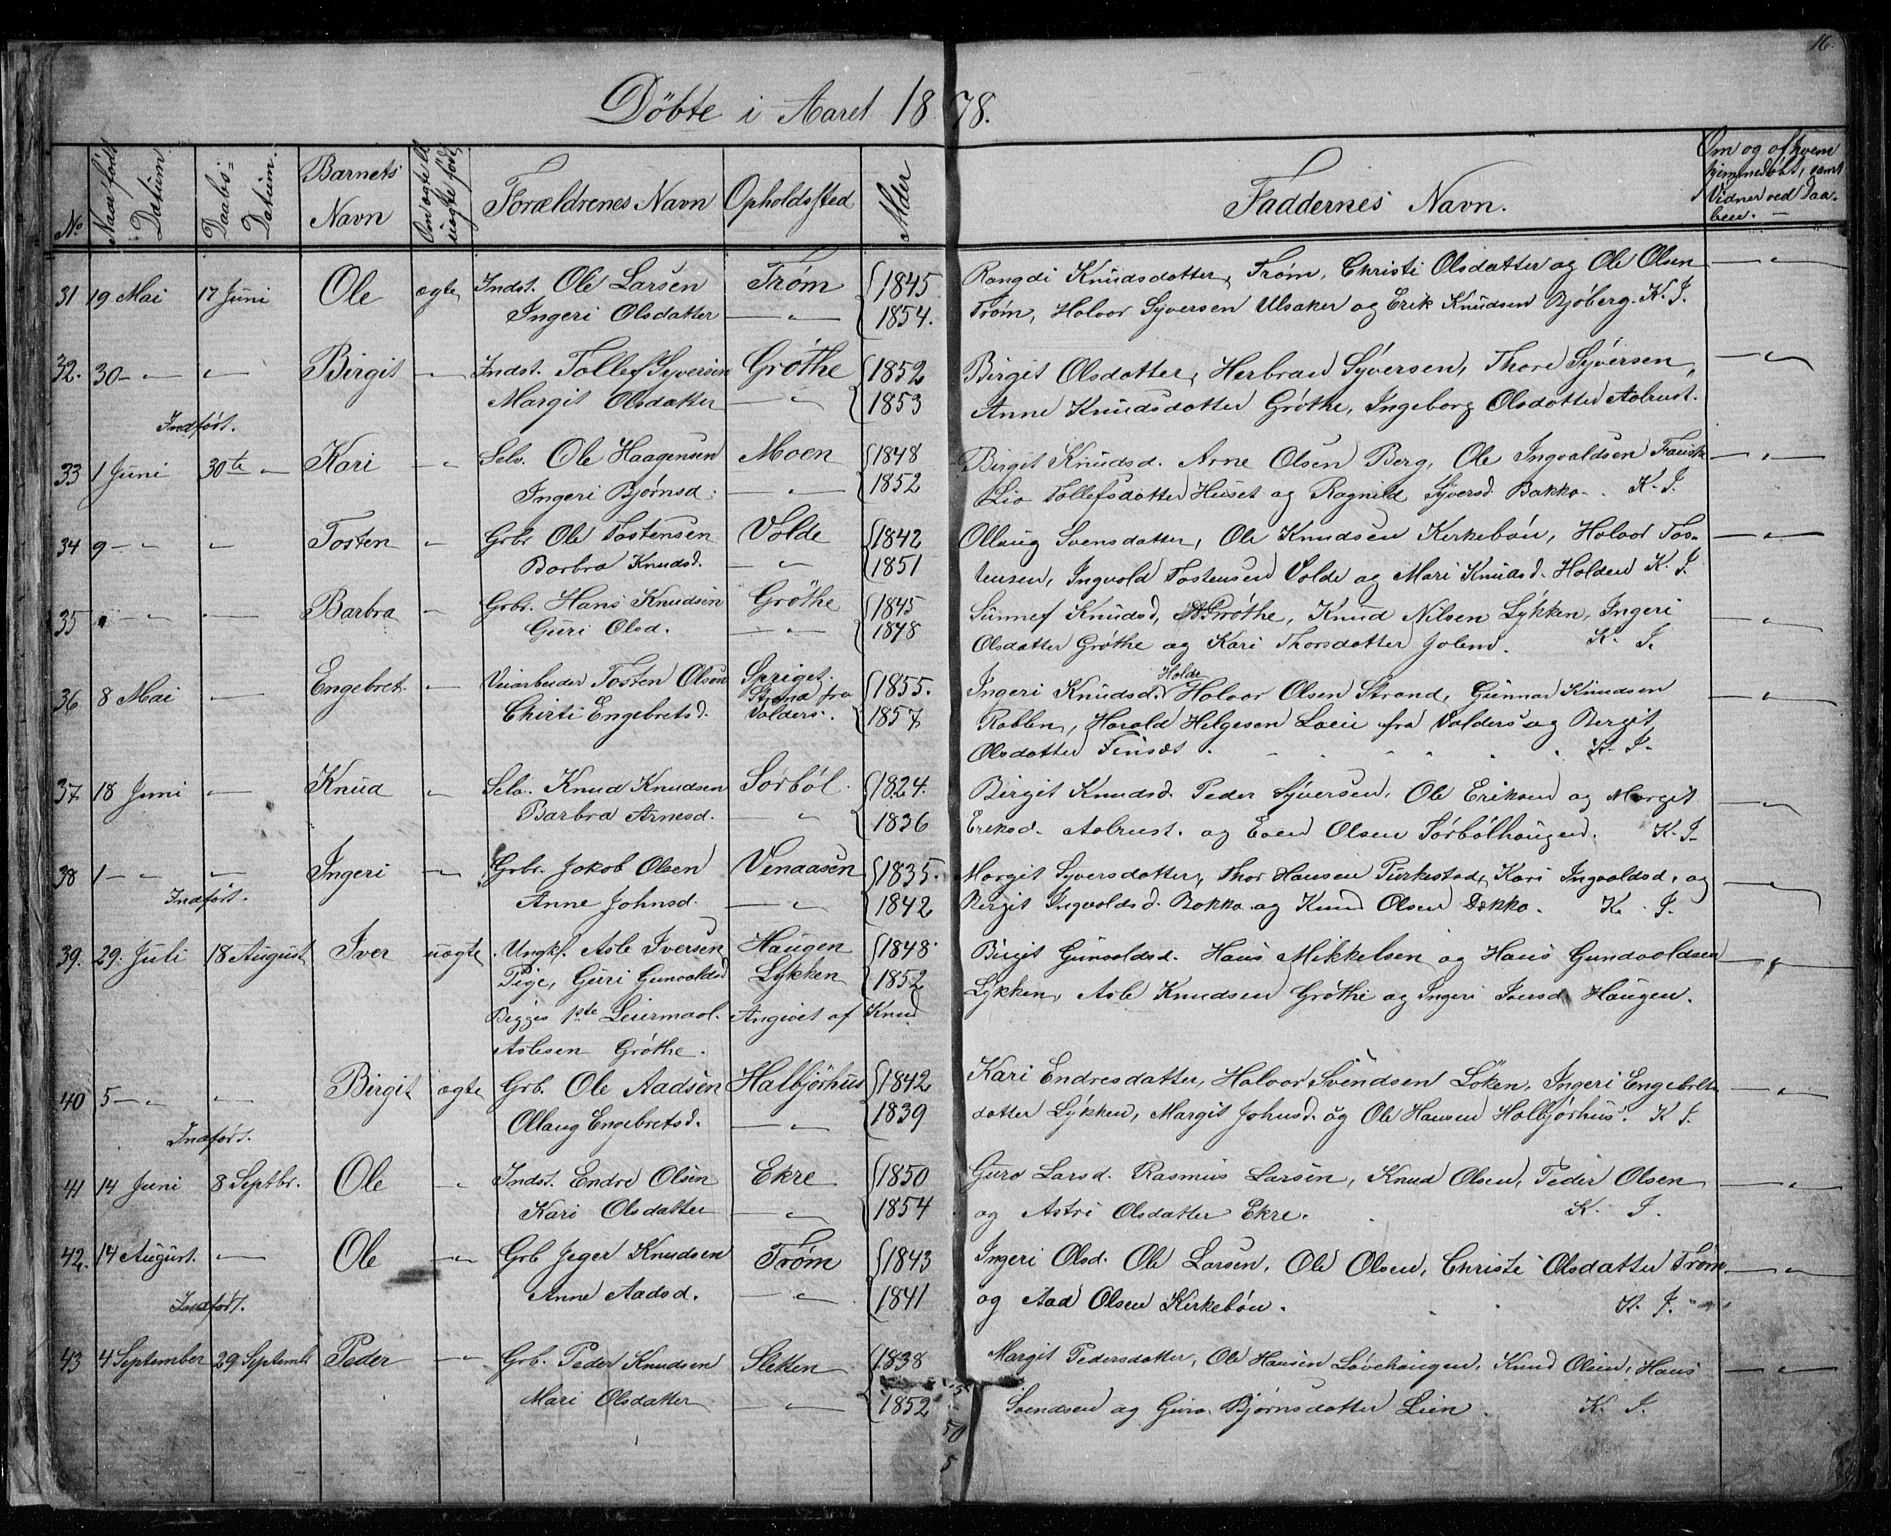 16.
Döbte i Aaret 1878.
No
Naar født Datum
Daabs= Datum.
Barnets Navn
Om ægte ell. uægte født
Forældrenes Navn
Opholdssted
Alder
Faddernes Navn.
Om og af hvem hjemmedøbt, samt Vidner ved Daaben. —
31 19 Mai 17 Juni Ole ægte Indst. Ole Larsen Trøm 1845 Rangdi Knudsdatter, Trøm, Christi Olsdatter og Ole Olsen — " —
Ingeri Olsdatter — " — 1854. Trøm, Halvor Syversen Ulsaker og Erik Knudsen Bjöberg. K. I.
32. 30 — " — — " — Birgit — " — Indst. Tollef Syversen Gröthe 1852 Birgit Olsdatter, Herbran Syversen, Thore Syversen, — " —
Margit Olsdatter — " — 1853 Anne Knudsdatter Gröthe, Ingeborg Olsdatter Aalrust.
Indført.
33 1 Juni 30te — " — Kari — " — Selv. Ole Haagensen Moen 1848 Birgit Knudsd. Arne Olsen Berg, Ole Ingvaldsen — " —
Ingeri Bjørnsd. — " — 1852 Liv Tollefsdatter Huset og Ragnild Syversd Bakko. K. I.
34 9 — " — — " — Tosten — " — Grbr Ole Tostensen Volde 1842 Ollaug Svensdatter, Ole Knudsen Kirkebøn, Halvor Tos= — " —
Barbra Knudsd. — " — 1851 tensen, Ingvald Tostensen Volde og Mari Knudsd. Holden K. I.
35 " — " — — " — Barbra — " — Grbr. Hans Knudsen Gröthe 1845 Sünnef Knudsd, Gröthe, Knud Nilsen Lykken, Ingeri — " —
Guri Olsd. — " — 1848 Olsdatter Gröthe og Kari Thorsdatter K. I.
36 8 Mai — " — Engebret. — " — Veiarbeider Tosten Olsen Spriget. 1855. Ingeri Knudsd. Holde Halvor Olsen Strand, Gunnar Knudsen — " —
Strand fra
Chirti Engebretsd. Valders. 1857 Harald Helgesen fra Valders og Bergit
Olsdatter K. I.
37 18 Juni — " — Knud — " — Selv. Knud Knudsen Sorböl 1824. Birgit Knudsd. Peder Syversen, Ole Eriksen og Margit — " —
Barbra Arnesd. — " — 1836 Eriksd. Aalrust. og Even Olsen Sörbölhaugen. K. I.
38 1 — " — — " — Ingeri — " — Grbr. Jakob Olsen Venaasen 1835. Margit Syversdatter, Thor Hansen Kari Ingvaldsd. og — " —
Indført.
Anne Johnsd. — " — 1842 Birgit Ingvaldsd. Bakko og Knud Olsen Bakko. K. I.
39. 29. Juli 18 August Iver uægte. Ungkf. Asle Iversen Haugen 1848. Birgit Gunvaldsd. Hans Mikkelsen og Hans Gundvaldsen — " —
Pige, Guri Gunvaldsd Lykken 1852 Lykken, Asle Knudsen Gröthe og Ingeri Iversd Haugen.
Begges 1ste Leiermaal. Angivet af Knud
Aslesen Gröthe.
40 5 — " — — " — Birgit ægte Grb. Ole Aadsen Halbjörhus 1842 Kari Endresdatter, Halvor Svendsen Löken, Ingeri Engebrets — " —
Ollaug Engebretsd. — " — 1839 datter Lykken, Margit Johnsd. og Ole Hansen Halbjørhus. K I.
Indført.
41 14 Juni 8 Septbr. Ole — " — Indst. Endre Olsen Ekre 1850 Guro Larsd. Rasmus Larsen, Knud Olsen, Peder Olsen — " —
Kari Olsdatter — " — 1854 og Astri Olsdatter Ekre. K. I.
42. 14 August. — " — Ole — " — Grb Jeger Knudsen Trøm 1843 Ingeri Olsd. Ole Larsen, Ole Olsen, Christi Olsdatter Trøm — " —
Indført.
Anne Aadsd. — " — 1841 og Aad Olsen Kirkebøn. K. I.
43 4 September 29 Septemb Peder — " — Grb. Peder Knudsen Sletten 1838 Margit Pedersdatter, Ole Hansen Løvehaugen, Knud Olsen, Hans — " —
Mari Olsdatter — " — 1852 Svendsen og Guro Bjørnsdatter Lien. K. I.
50
5